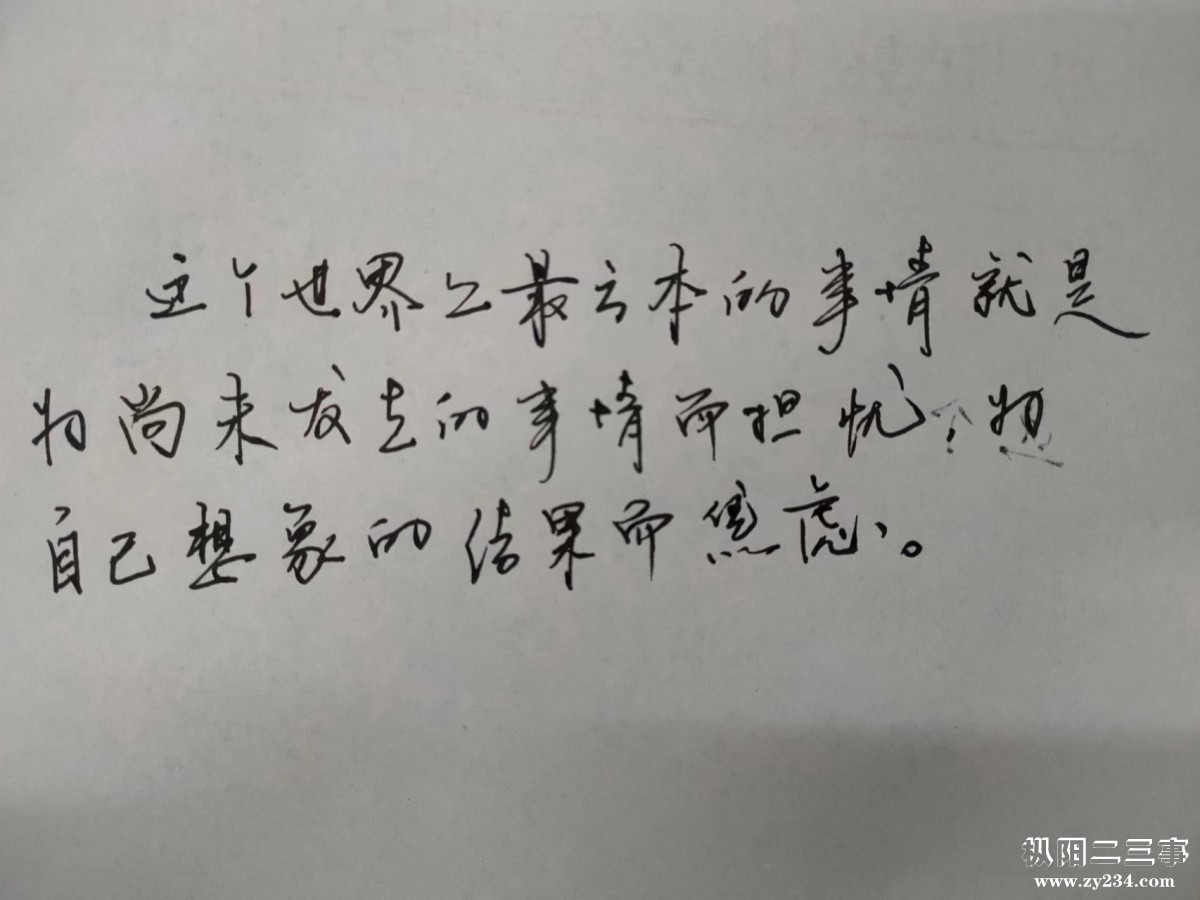 这个世界上最亏本的事情就是
为尚未发生的事情而担忧，为
自己想象的结果而焦虑。
枞阳二三事
www.zy234.com